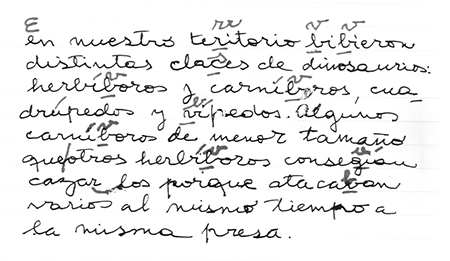 E rr v v
en nuestro teritorio bibieron
distintas clases de dinosaurios:
v v
herbíboros y carníboros, cua-
drúpedos y vípedos. Algunos
v
carníboros de menor tamaño
v
que otros herbíboros consegian
cazar los porque atacaban
varios al mismo tiempo a
la misma presa.